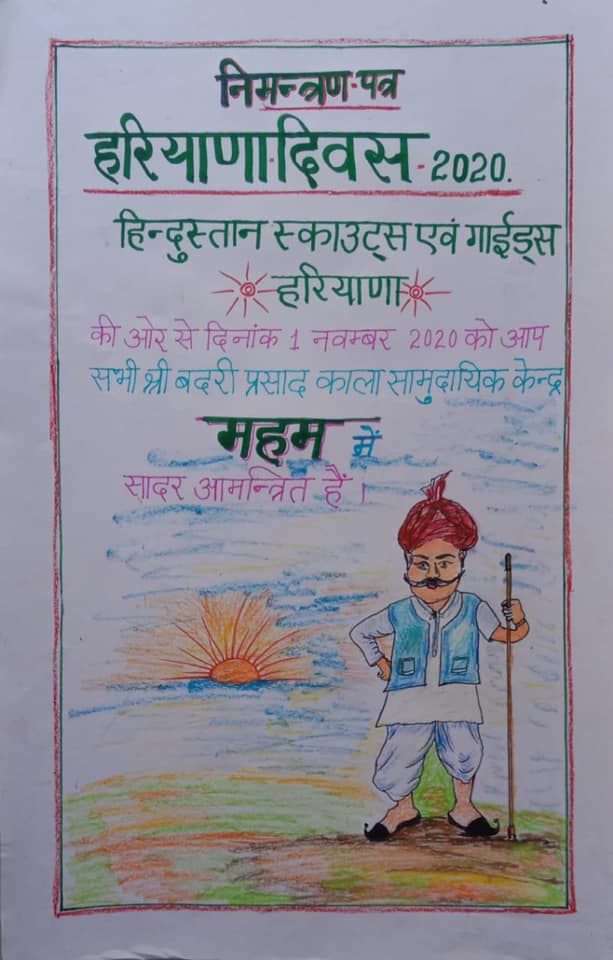 निमन्त्रण-पत्र
हरियाणा-दिवस-2020.
हिन्दुस्तान स्काउट्स एवं गाईड्स
हरियाणा
की ओर से दिनांक 1 नवम्बर 2020 को आप
सभी श्री बदरी प्रसाद काला सामुदायिक केन्द्र
महम में
सादर आमन्त्रित हैं।